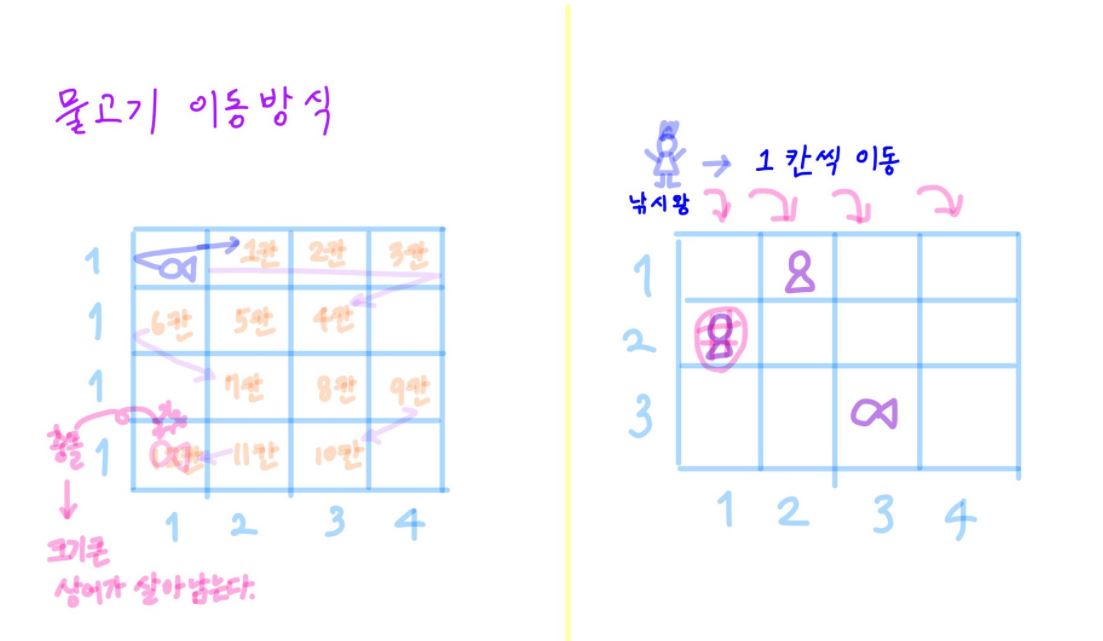 물고기 이동방식
1 1칸 2칸 3칸
1 6칸 5칸 4칸
1 7칸 8칸 9칸
충돌 1 11칸 10칸
1 2 3 4
크기큰
상어가 살아남는다.
→ 1칸씩 이동
낚시왕
1
2
3
1 2 3 4